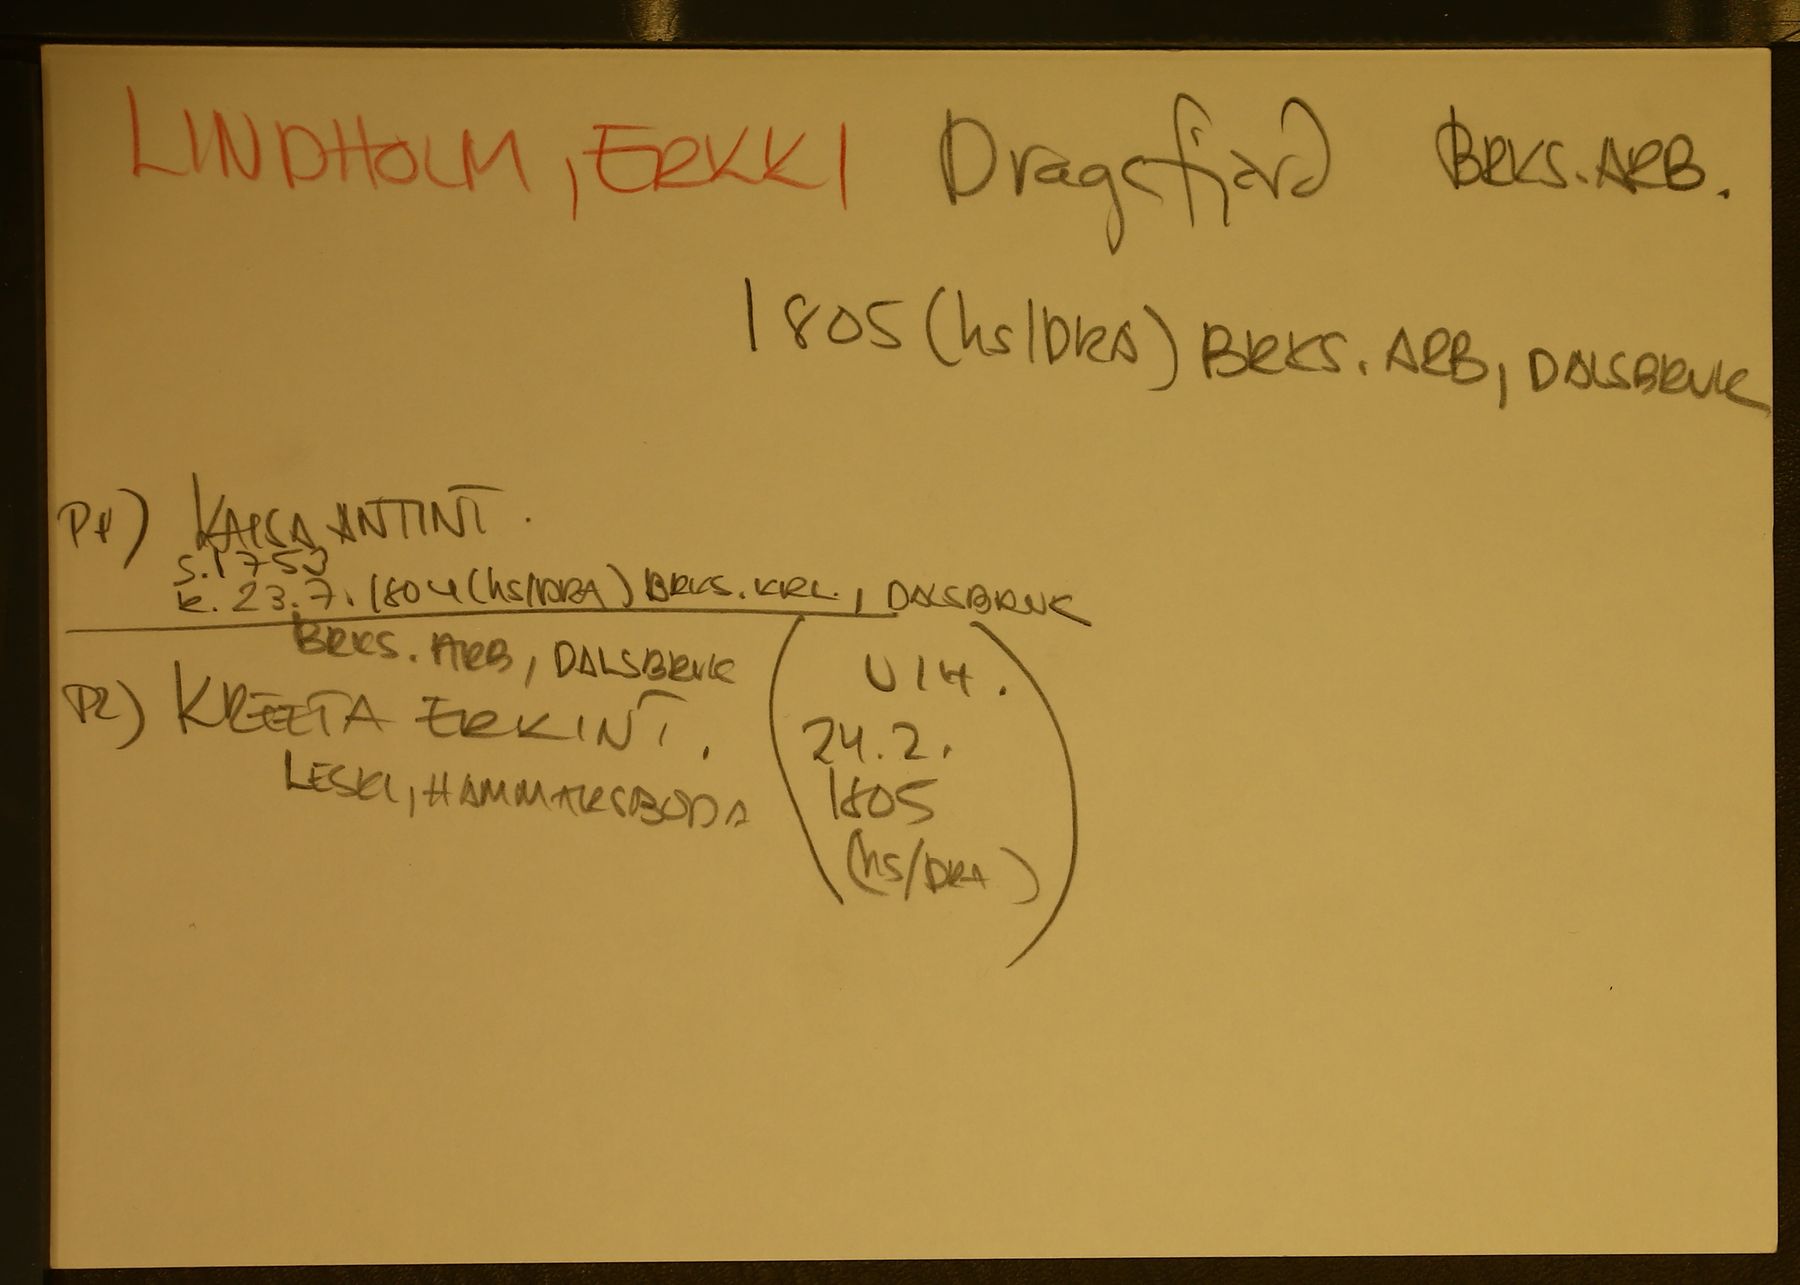 LINDHOLM, ERKKI Dragsfjärd BRKS. ARB.
1805 (hs/DRA) BRKS. ARB, DALSBRUK
P1) KAISA ANTINT.
s. 1753
k. 23.7.1804 (hs/DRA) BRKS. KRL., DALSBRUK
BRKS. ARB, DALSBRUK
P2) KREETA ERKINT.
LESKI, HAMMARSBODA
(VIH.
24.2.
1805
(hs/DRA))